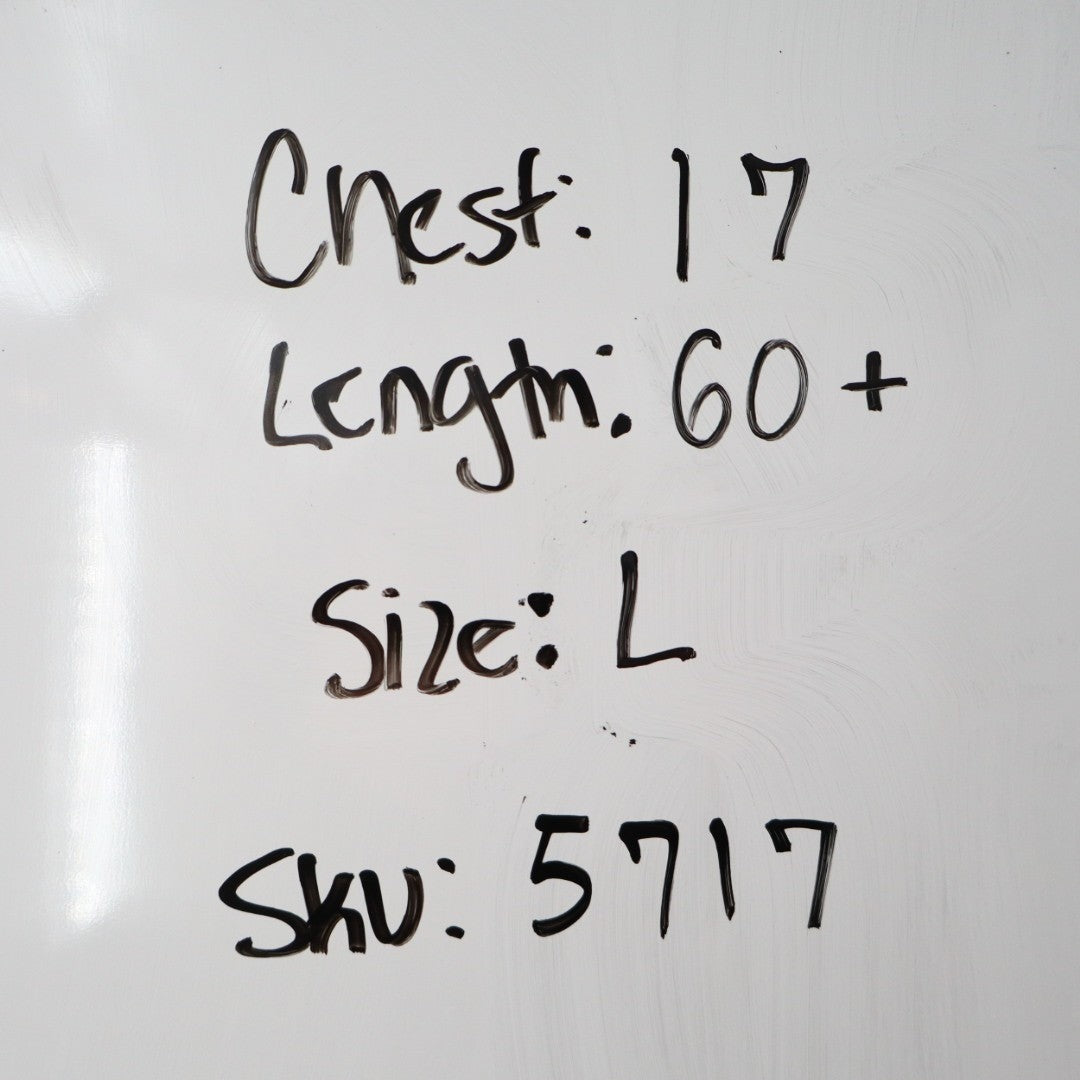 Chest: 17
Length: 60+
Size: L
Sku: 5717